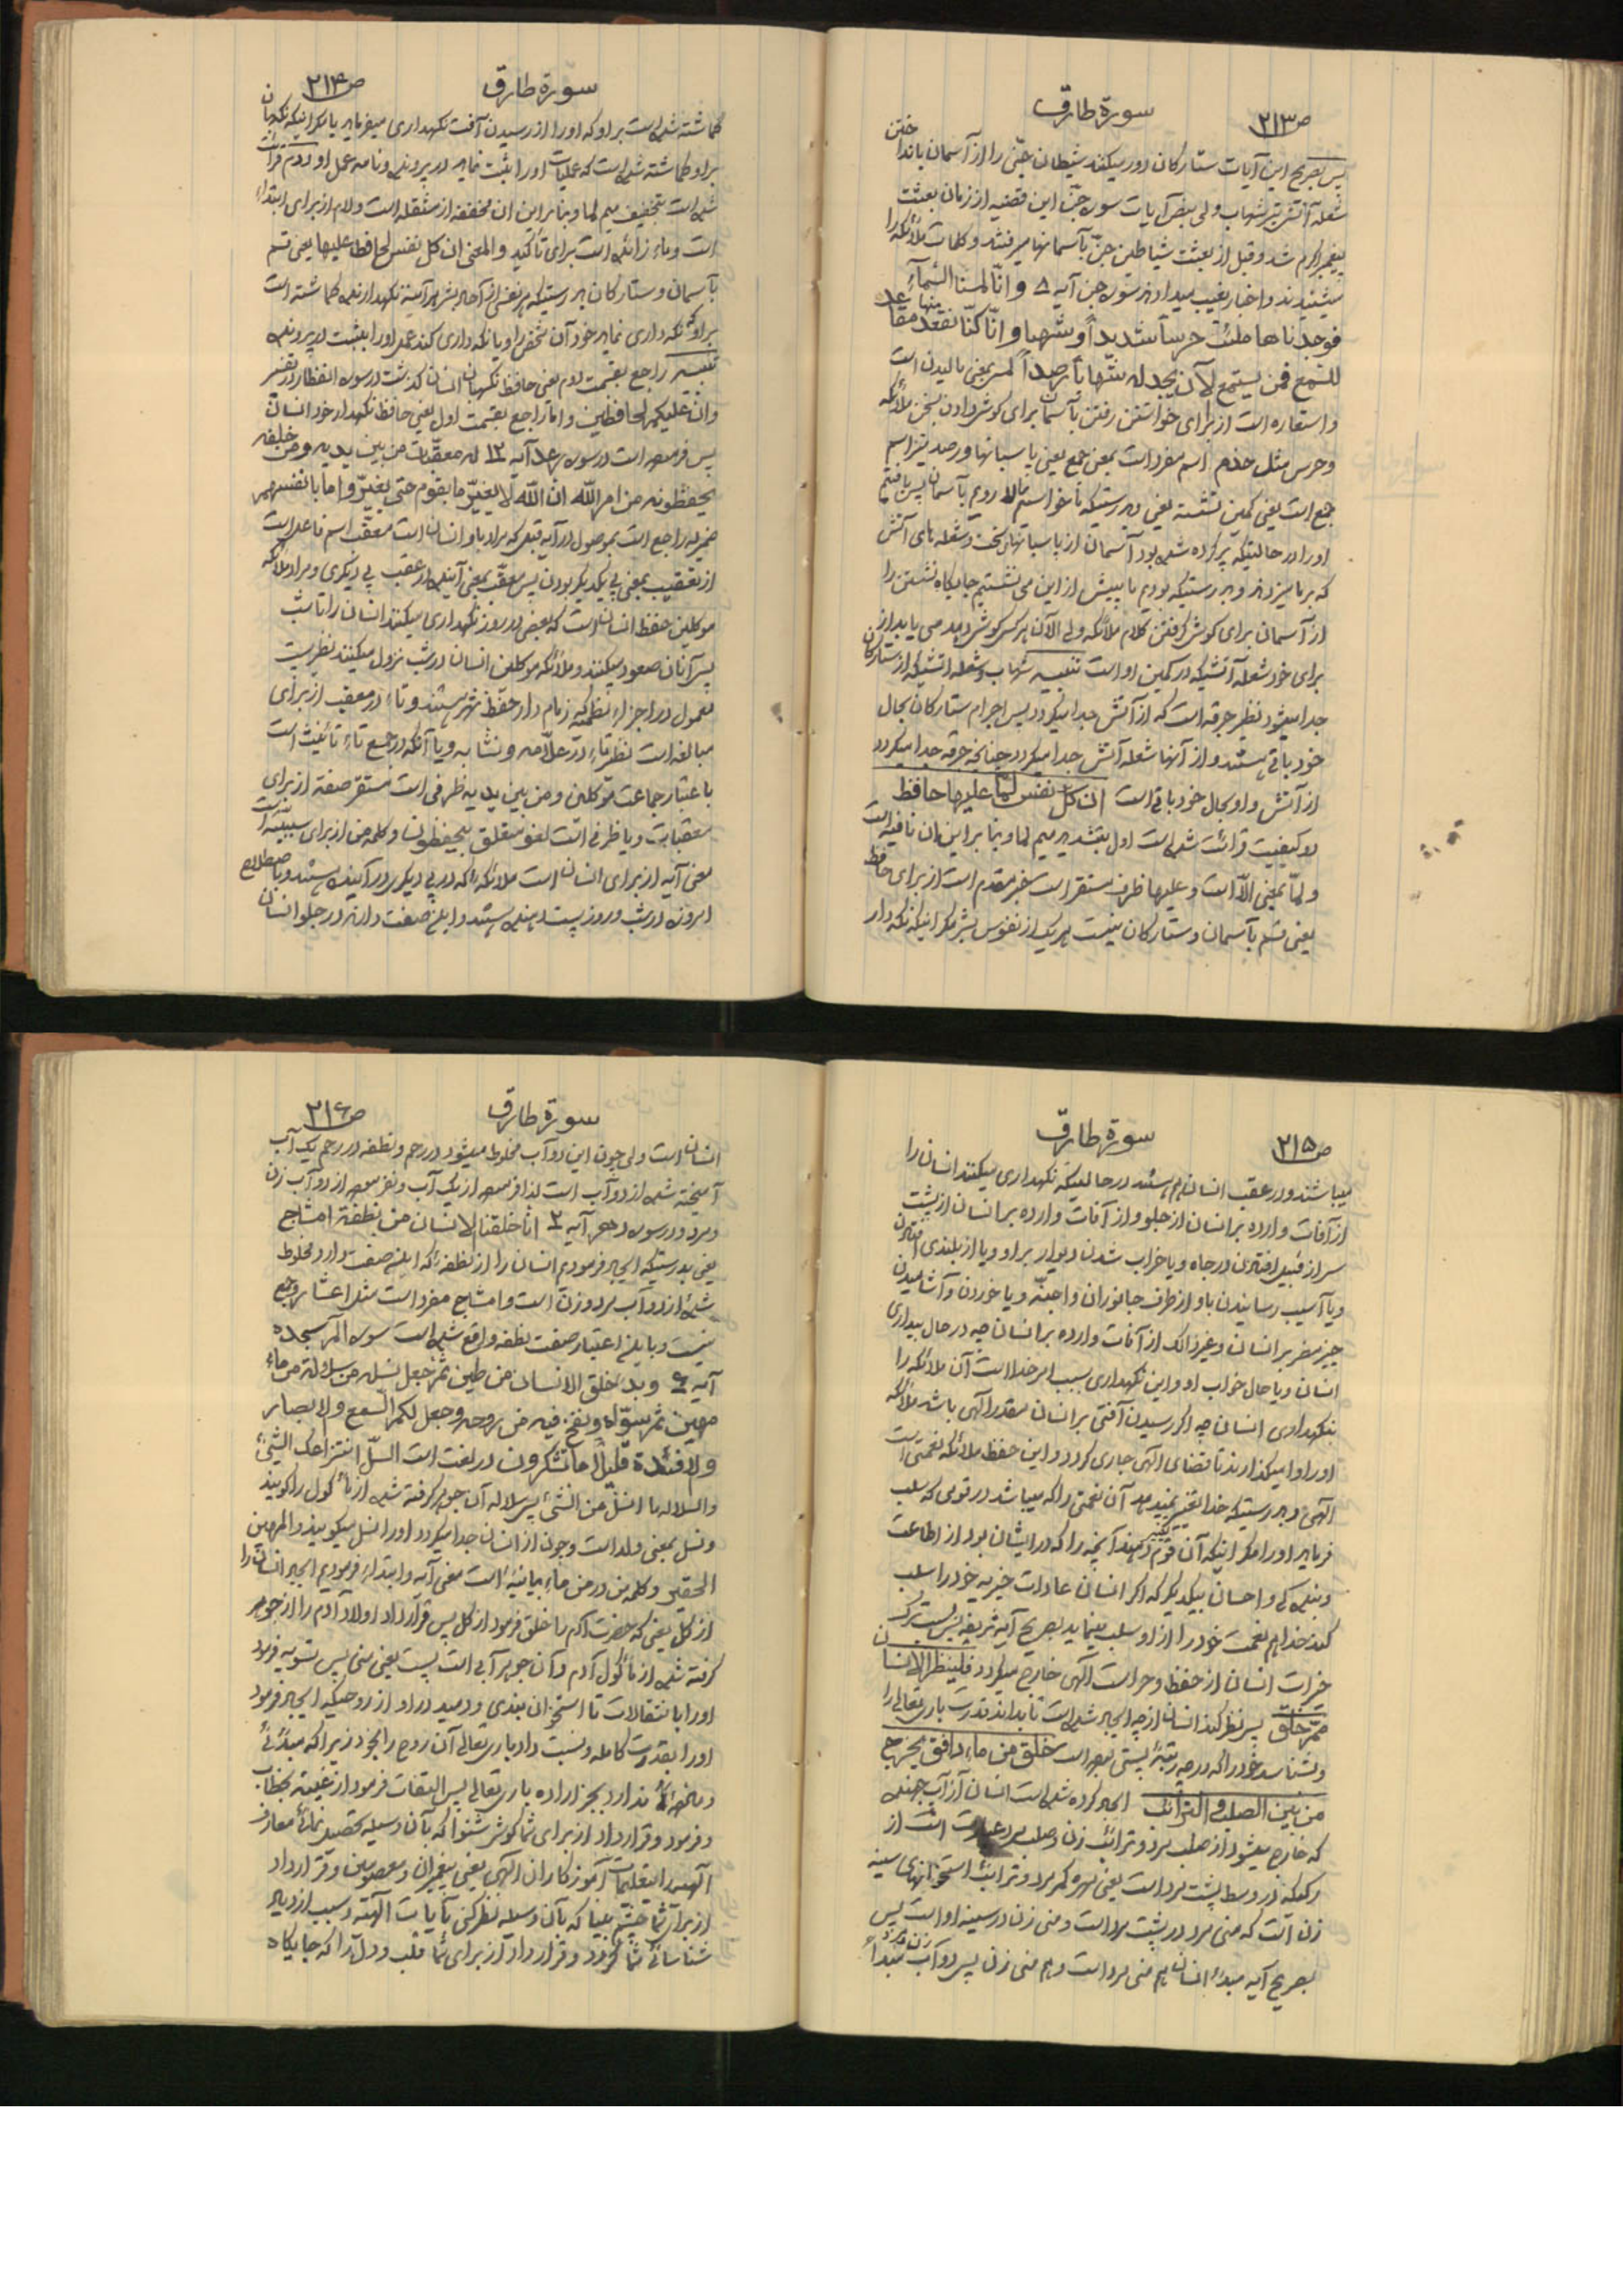 ص۲۱۳ سورة طارق
پس بصریح این آیات ستارکان دور میکنند شیطان جنّی را از آسمان بانداختن
شعله آتش تیر شهاب ولی بنصّ آیات سوره جنّ این قضیه از زمان بعثت
پیغمبر اکرم شد و قبل از بعثت شیاطین جنّ بآسمانها میرفتند و کلمات ملائکه را
میشنیدند و اخبار بغیب میدادند سوره جن آیه ۸ و انّا لمسنا السّمآء
فوجدناها ملئت حرساً شدیداً و شهبا و انّا کنّا نقعد منها مقاعد
للسّمع فمن یستمع لآن یجد له شهاباً رصداً لمس بمعنی مالیدن است
و استعاره است از برای خواستن رفتن بآسمان برای کوش دادن سخن ملائکه
و حرس مثل خدم اسم مفرد است بمعنی جمع یعنی پاسبانها و رصد نیز اسم
جمع است یعنی کمین نشسته یعنی بدرستیکه ما خواستیم بالا رویم بآسمان پس یافتیم
او را در حالتیکه پر کرده شده بود آسمان از پاسبانهای سخت و شعله های آتش
که برما میزدند و بدرستیکه بودیم ما پیش از این می نشستیم جایکاه نشستن را
از آسمان برای کوش کرفتن کلام ملائکه ولی الآن هر کس کوش دهد می یابد از
برای خود شعله آتشیکه در کمین او است تنبیه شهاب و شعله آتشیکه از ستارکان
جدا میشود نظیر جرقه است که از آتش جدا میکردد پس اجرام ستارکان بحال
خود باقی هستند و از آنها شعله آتش جدا میکردد چنانچه جرقه جدا میکردد
از آتش و او بحال خود باقی است ان کلّ نفس لمّا علیها حافظ
دو کیفیت قرائت شده است اول بتشدید میم لما و بنابراین ان نافیه است
و لمّا بمعنی الّا است و علیها ظرف مستقر است خبر مقدم است از برای حافظ
یعنی قسم بآسمان و ستارکان نیست هر یک از نفوس بشر مکر اینکه نکه دار
ص۲۱۴ سورة طارق
کماشته شده است بر او که او را از رسیدن آفت نکهداری میفرماید یا مکر اینکه نکهبان
بر او کماشته شده است که عملیات او را ثبت نماید در پرونده و نامه عمل او دوم قرائت
شده است بتخفیف میم لما و بنابراین ان مخففه از مثقله است و لام از برای ابتداء
است و ماء زائده است برای تأکید و المعنی ان کل نفس لحافظ علیها یعنی قسم
بآسمان و ستارکان بدرستیکه هر نفسی از آحاد بشر هر آینه نکهدارنده کماشته است
بر او که نکه داری نماید خود آن شخص را و یا نکه داری کند عمل او را بثبت در پرونده
تنبیه راجع بقسمت دوم یعنی حافظ نکهبان انسان کذشت در سوره انفطار در تفسیر
وانّ علیکم لحافظین و امّا راجع بقسمت اول یعنی حافظ نکهدار خود انسان
پس فرموده است در سوره رعد آیه ۱۲ له معقّبات من بین یدیه و من خلفه
یحفظونه من امر اللّه انّ اللّه لا یغیّر ما بقوم حتی یغیّروا ما بانفسهم
ضمیر له راجع است بموصول در آیه قبل که مراد باو انسان است معقّب اسم فاعل است
از تعقیب بمعنی پی یکدیکر بودن پس معقّب بمعنی آینده در عقب پی دیکری و مراد ملائکه
موکلین حفظ انسان است که بعضی در روز نکهداری میکنند انسان را تا شب
پس آنان صعود میکنند و ملائکه موکلین انسان در شب نزول میکنند نظریست
معمول در اجزاء نظمیه زمام دار حفظ شهر هستند و تاء در معقب از برای
مبالغه است نظیر تاء در علّامه و نسّابه و یا آنکه در جمع تاء تأنیث است
باعتبار جماعت موکلین و من بین یدیه ظرفی است مستقر صفة از برای
معقبات و یا ظرفی است لغو متعلق بیحفظونه و کلمه من از برای سببیّه است
معنی آیه از برای انسان است ملائکه که در پی دیکری در آینده هستند و باصطلاح
امروزه در شب و روز پست دهنده هستند و این صفت دارند در جلو انسان
ص۲۱۵ سورة طارق
میباشند و در عقب انسان هم هستند در حالتیکه نکهداری میکنند انسان را
از آفات وارده بر انسان از جلو و از آفات وارده بر انسان از پشت
سر از قبیل افتادن در چاه و یا خراب شدن دیوار بر او و یا از بلندی افتادن
و یا آسیب رسانیدن باو از طرف جانوران و اجنّه و یا خوردن و آشامیدن
چیز مضر بر انسان و غیر ذالک از آفات وارده بر انسان چه در حال بیداری
انسان و یا حال خواب او و این نکهداری بسبب امر خدا است آن ملائکه را
بنکهداری انسان چه اکر رسیدن آفتی بر انسان مقدر الهی باشد ملائکه
او را وا میکذارند تا قضای الهی جاری کردد و این حفظ ملائکه نعمتی است
الهی و بدرستیکه خدا تغییر نمیدهد آن نعمتی را که میباشد در قومی که سلب
فرماید او را مکر اینکه آن قوم تغییر دهند آنچه را که در ایشان بود از اطاعت
و بندکی و احسان بیکدیکر که اکر انسان عادات خیریه خود را سلب
کند خدا هم نعمت خود را از او سلب مینماید بصریح آیه شریفه پس بسبب ترک
خیرات انسان از حفظ و حراست الهی خارج میکردد فلینظر الانسان
ممّ خلق پس نظر کند انسان از چه ایجاد شده است تا بداند قدرت باری تعالی را
و بشناسد خود را که در چه رتبهٔ پستی بوده است خلق من ماء دافق یخرج
من بین الصلب و الترائب ایجاد کرده شده است انسان از آب جهنده
که خارج میشود از صلب مرد و ترائب زن و صلب مرد عبارت است از
رکی که در وسط پشت مرد است یعنی مهره کمر مرد و ترائب استخوانهای سینه
زن است که منی مرد در پشت مرد است و منی زن در سینه او است پس
بصریح آیه مبدء انسان هم منی مرد است و هم منی زن پس دو آب زن و مرد مبدأ
ص۲۱۶ سورة طارق
انسان است ولی چون این دو آب مخلوط میشود در رحم و نطفه در رحم یک آب
آمیخته شده از دو آب است لذا فرموده از یک آب و نفرموده از دو آب زن
و مرد و در سوره دهر آیه ۲ انّا خلقنا الانسان من نطفة امشاج
یعنی بدرستیکه ایجاد فرمودم انسان را از نطفهٔ که این صفت دارد مخلوط
شده از دو آب مرد و زن است و امشاج مفرد است مثل اعشار و جمع
نیست و باین اعتبار صفت نطفه واقع شده است سوره الم سجده
آیه ۶ و بدء خلق الانسان من طین ثم جعل نسله من سلالة من ماء
مهین ثم سوّاه و نفخ فیه من روحه و جعل لکم السّمع و الابصار
و الافئدة قلیلاً ما تشکرون در لغت است السلّ انتزاعک الشیء
والسلاله ما انسلّ من الشیء پس سلاله آن جوهر کرفته شده از مأکول را کویند
و نسل بمعنی ولد است و چون از انسان جدا میکردد او را نسل میکویند و المهین
الحقیر و کلمه من در من ماء بیانیه است معنی آیه و ابتداء فرمودیم ایجاد انسان را
از کل یعنی که حضرت آدم را خلق فرمود از کل پس قرار داد اولاد آدم را از جوهر
کرفته شده از مأکول آدم و آن جوهر آبی است پست یعنی منی پس تسویه فرمود
او را بانتقالات تا استخوان بندی و دمید در او از روحیکه ایجاد فرمود
او را بقدرت کامله و نسبت داد باری تعالی آن روح را بخود زیرا که مبدئی
و مأخذی ندارد بجز اراده باری تعالی پس التفات فرمود از غیبة بخطاب
و فرمود و قرار داد از برای شما کوش شنوا که بآن وسیله تحصیل نمائی معارف
الهیه را بتعلیمات آموزکاران الهی یعنی پیغمبران و معصومین و قرار داد
از برای شما چشم بینا که بآن وسیله نظر کنی بآیات الهیّه و سبب ازدیاد
شناسائی شما کردد و قرار داد از برای شما قلب و دل را که جایکاه